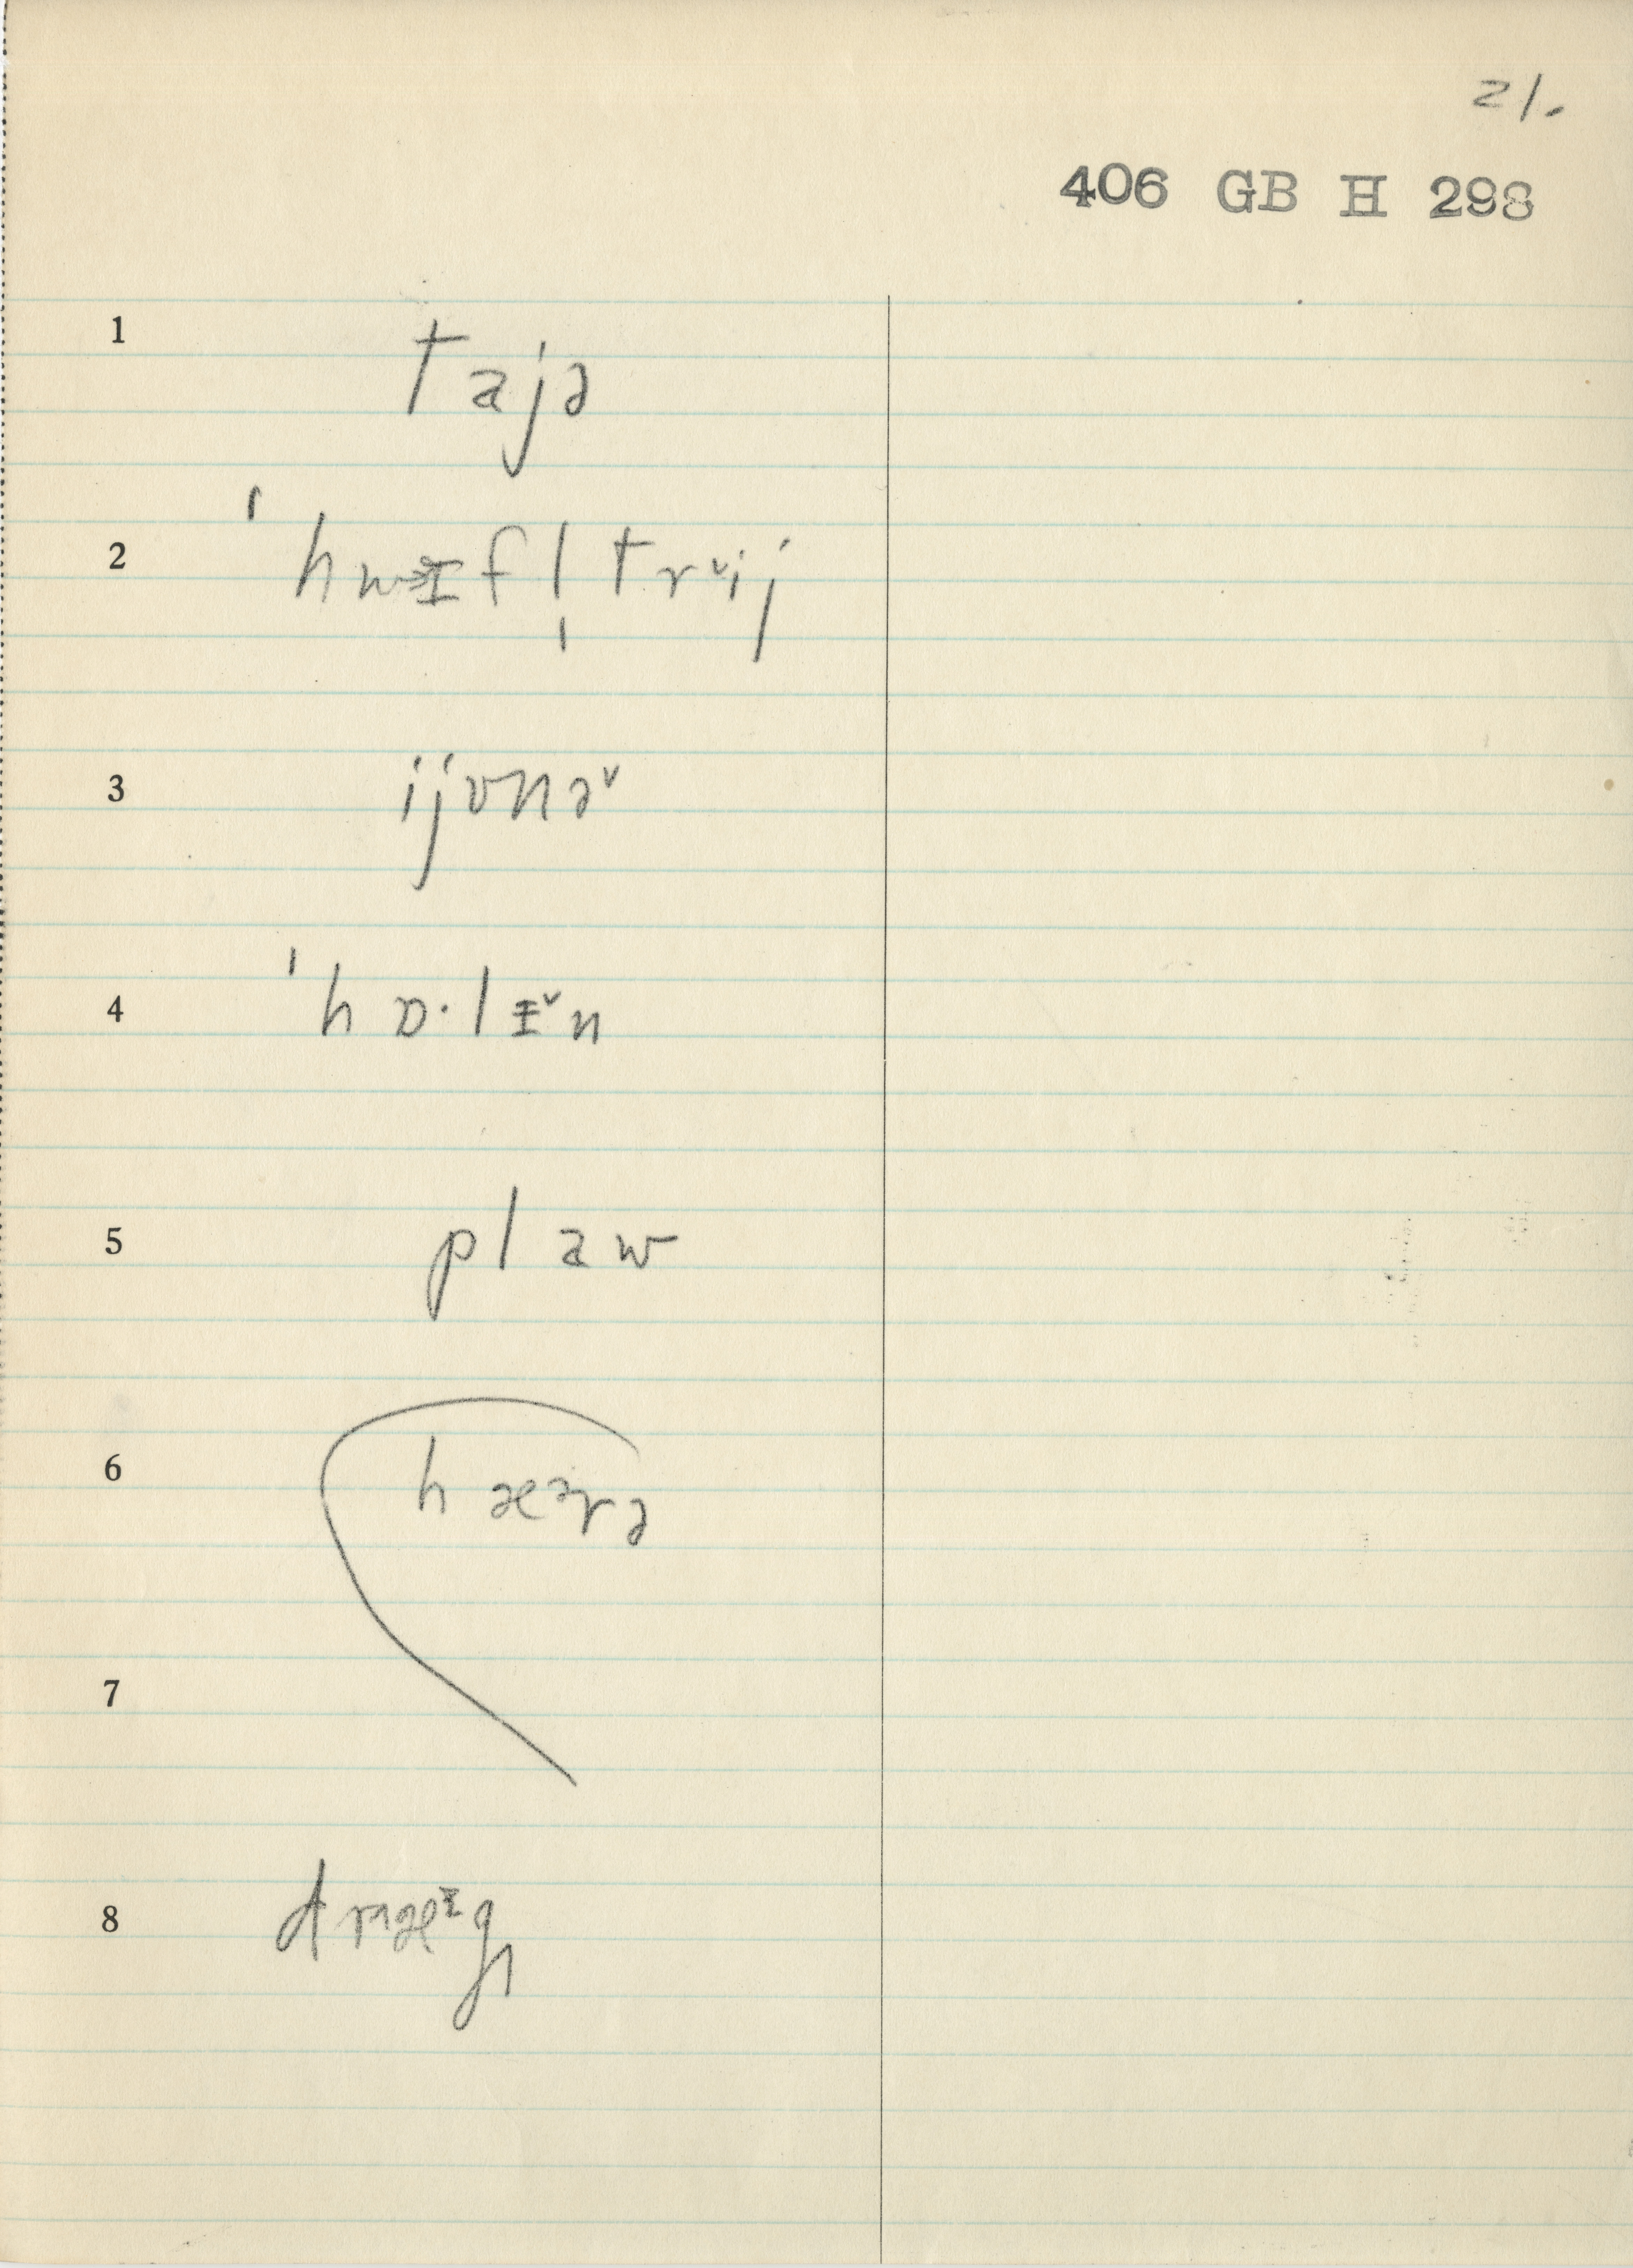 21.
406 GB H 298
1 tajə
2 ˈhwᵊɪfl̩trᵛij
3 ijʊnəᵛ
4 ˈhɒ·lɪᵛn
5 plaw
6 hæᵊrə
7
8 dræᶦg